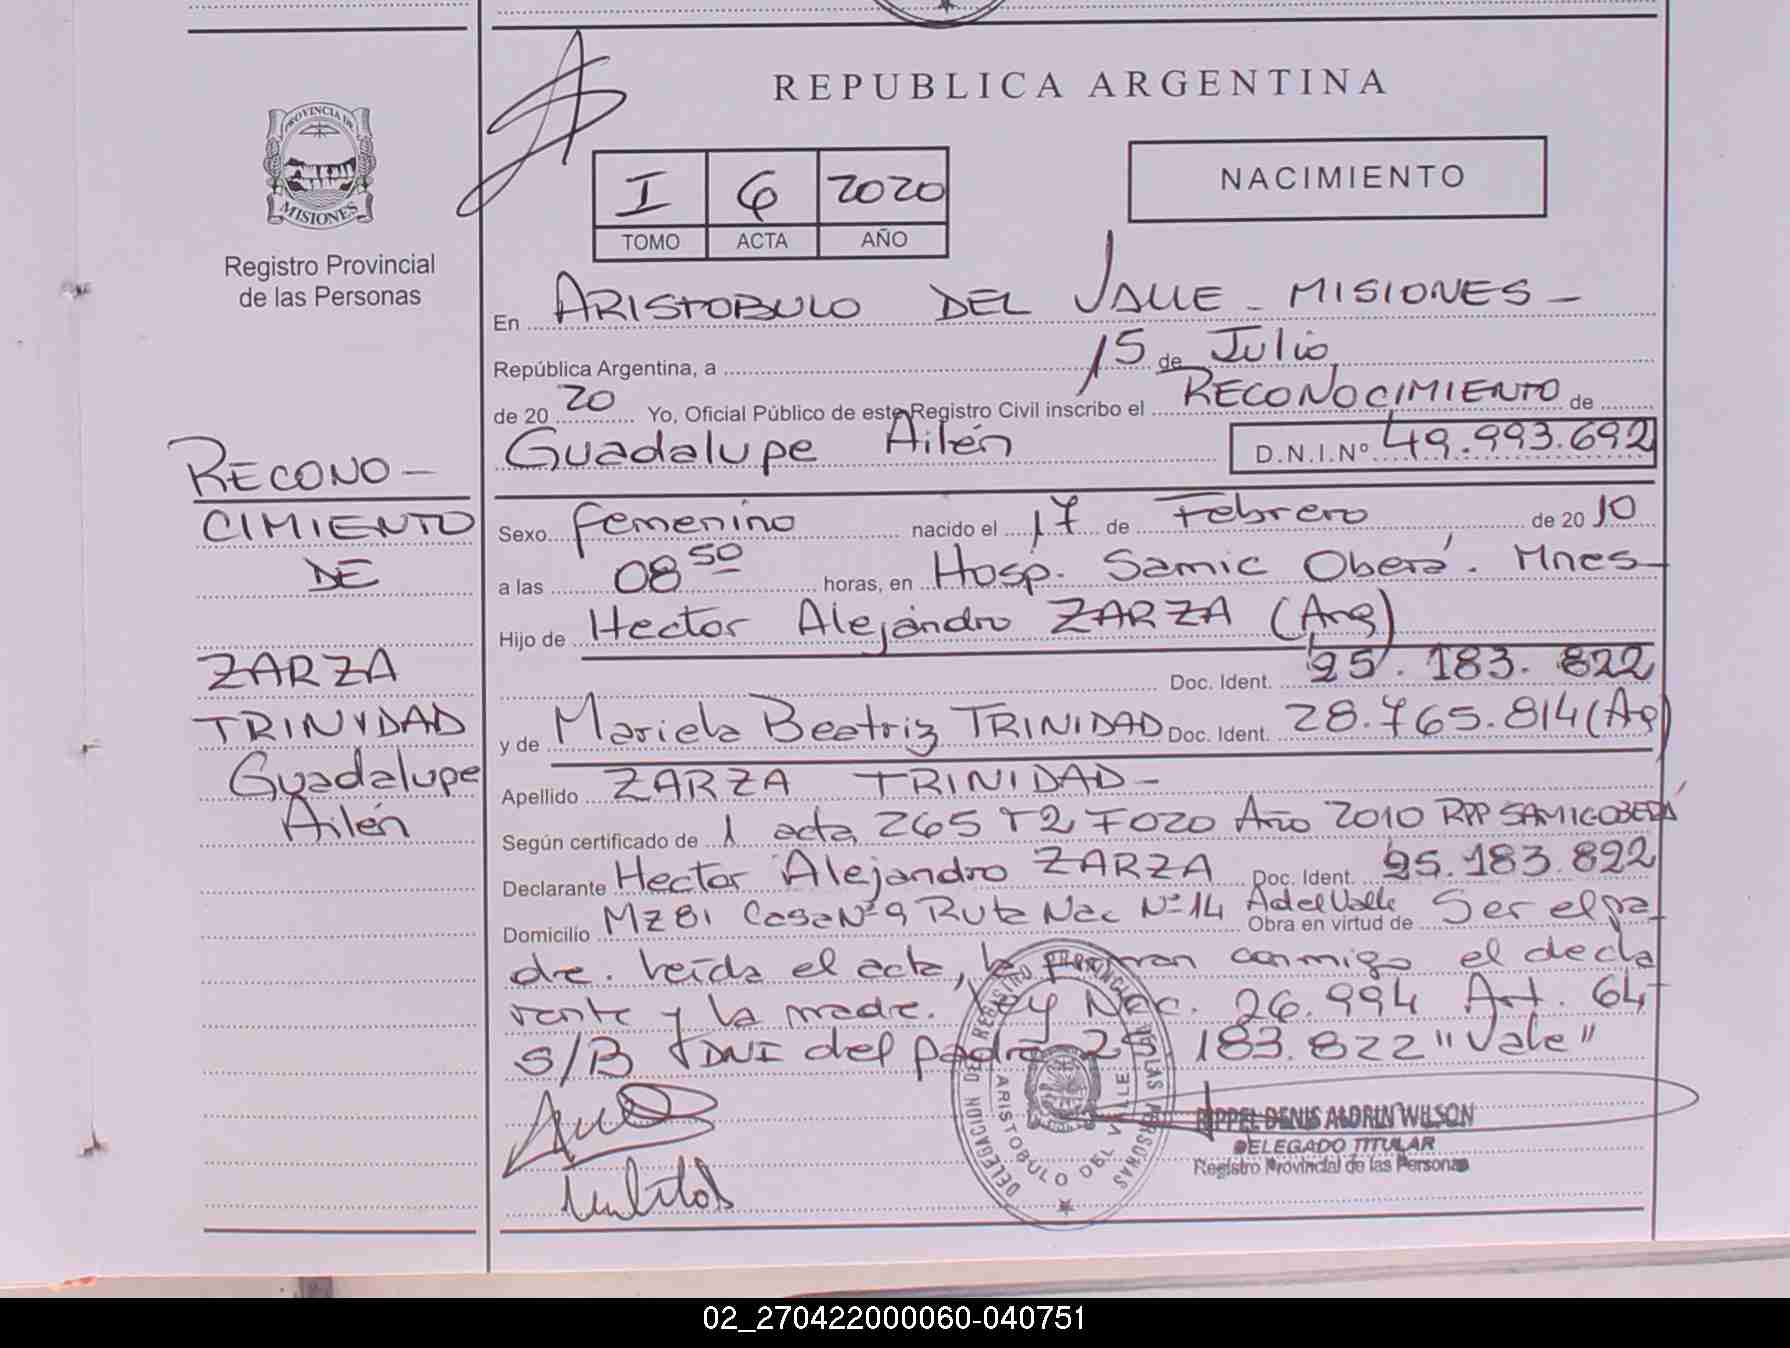 REPUBLICA ARGENTINA
PROVINCIA DE
MISIONES
Registro Provincial
de las Personas
I 6 2020
TOMO ACTA AÑO
NACIMIENTO
En ARISTOBULO DEL VALLE - MISIONES -
República Argentina, a 15 de Julio
de 20 20 Yo, Oficial Público de este Registro Civil inscribo el RECONOCIMIENTO de
Guadalupe Ailén D.N.I.Nº 49.993.692
Sexo femenino nacido el 17 de Febrero de 20 10
a las 08 50 horas, en Hosp. Samic Oberá. Mnes
Hijo de Hector Alejandro ZARZA (Arg)
Doc. Ident. 25.183.822
y de Mariela Beatriz TRINIDAD Doc. Ident. 28.765.814 (Ag)
Apellido ZARZA TRINIDAD -
Según certificado de 1 acta 265 T2 F020 Año 2010 RPP SAMIC-OBERÁ
Declarante Hector Alejandro ZARZA Doc. Ident. 25.183.822
Domicilio MZ 81 Casa Nº 9 Ruta Nac Nº 14 A del Valle Obra en virtud de Ser el pa
dre. leída el acta, la firman conmigo el decla
rante y la madre. Ley Nac. 26.994 Art. 64
S/B DNI del padre 25.183.822 "Vale"
RECONO -
CIMIENTO
DE
ZARZA
TRINIDAD
Guadalupe
Ailén
DELEGACION DEL REGISTRO PROVINCIAL DE LAS PERSONAS
ARISTOBULO DEL VALLE
RIPPEL DENIS ALDRIN WILSON
DELEGADO TITULAR
Registro Provincial de las Personas
02_270422000060-040751